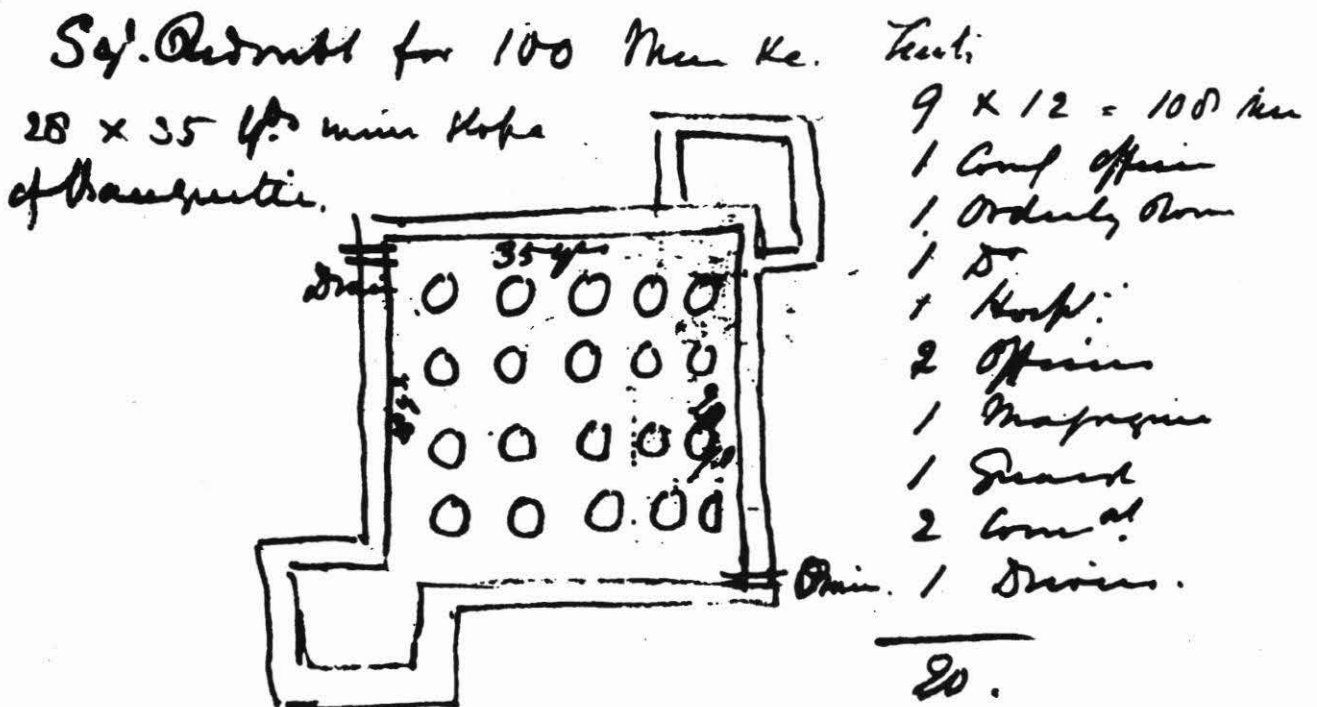 Sqr. Redoubt for 100 Men &c.
28 x 35 yds minus slope
of Banquette.
35 yds
Drain
Drain.
Tents
9 x 12 = 108 men
1 Comg officer
1 Orderly Room
1 Dr
1 Hospl.
2 Officers
1 Magazine
1 Guard
2 Commat.
1 Drivers.
20.